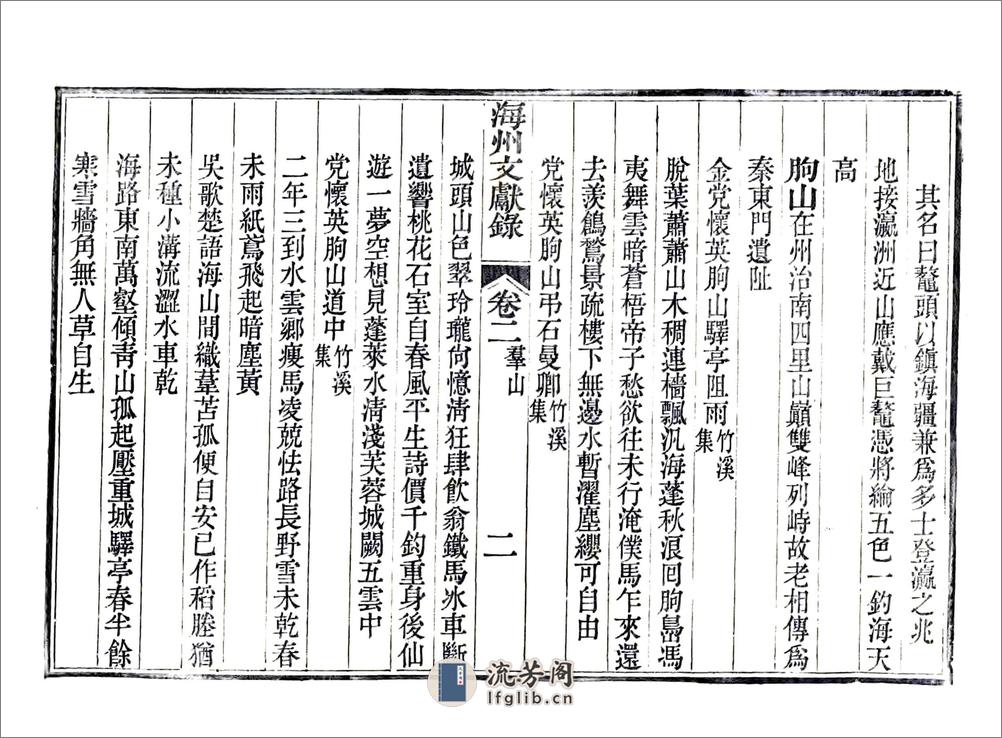 其名曰鼇頭以鎮海疆兼爲多士登瀛之兆
地接瀛洲近山應戴巨鼇憑將綸五色一釣海天
高
朐山在州治南四里山巔雙峰列峙故老相傳爲
秦東門遺阯
金党懷英朐山驛亭阻雨竹溪集
脫葉蕭蕭山木稠連檣飄汎海蓬秋浪囘朐島馮
夷舞雲暗蒼梧帝子愁欲往未行淹僕馬乍來還
去羨鶬鶖景疏樓下無邊水暫濯塵纓可自由
党懷英朐山弔石曼卿竹溪集
海州文獻錄
卷二羣山
二
城頭山色翠玲瓏何憶淸狂肆飮翁鐵馬氷車斷
遺響桃花石室自春風平生詩價千鈞重身後仙
遊一夢空想見蓬萊水淸淺芙蓉城闕五雲中
党懷英朐山道中竹溪集
二年三到水雲鄉瘦馬凌兢怯路長野雪未乾春
未雨紙鳶飛起暗塵黃
吳歌楚語海山間織葦苫孤便自安已作稻塍猶
未種小溝流澀水車乾
海路東南萬壑傾靑山孤起壓重城驛亭春半餘
寒雪牆角無人草自生
流芳阁
lfglib.cn